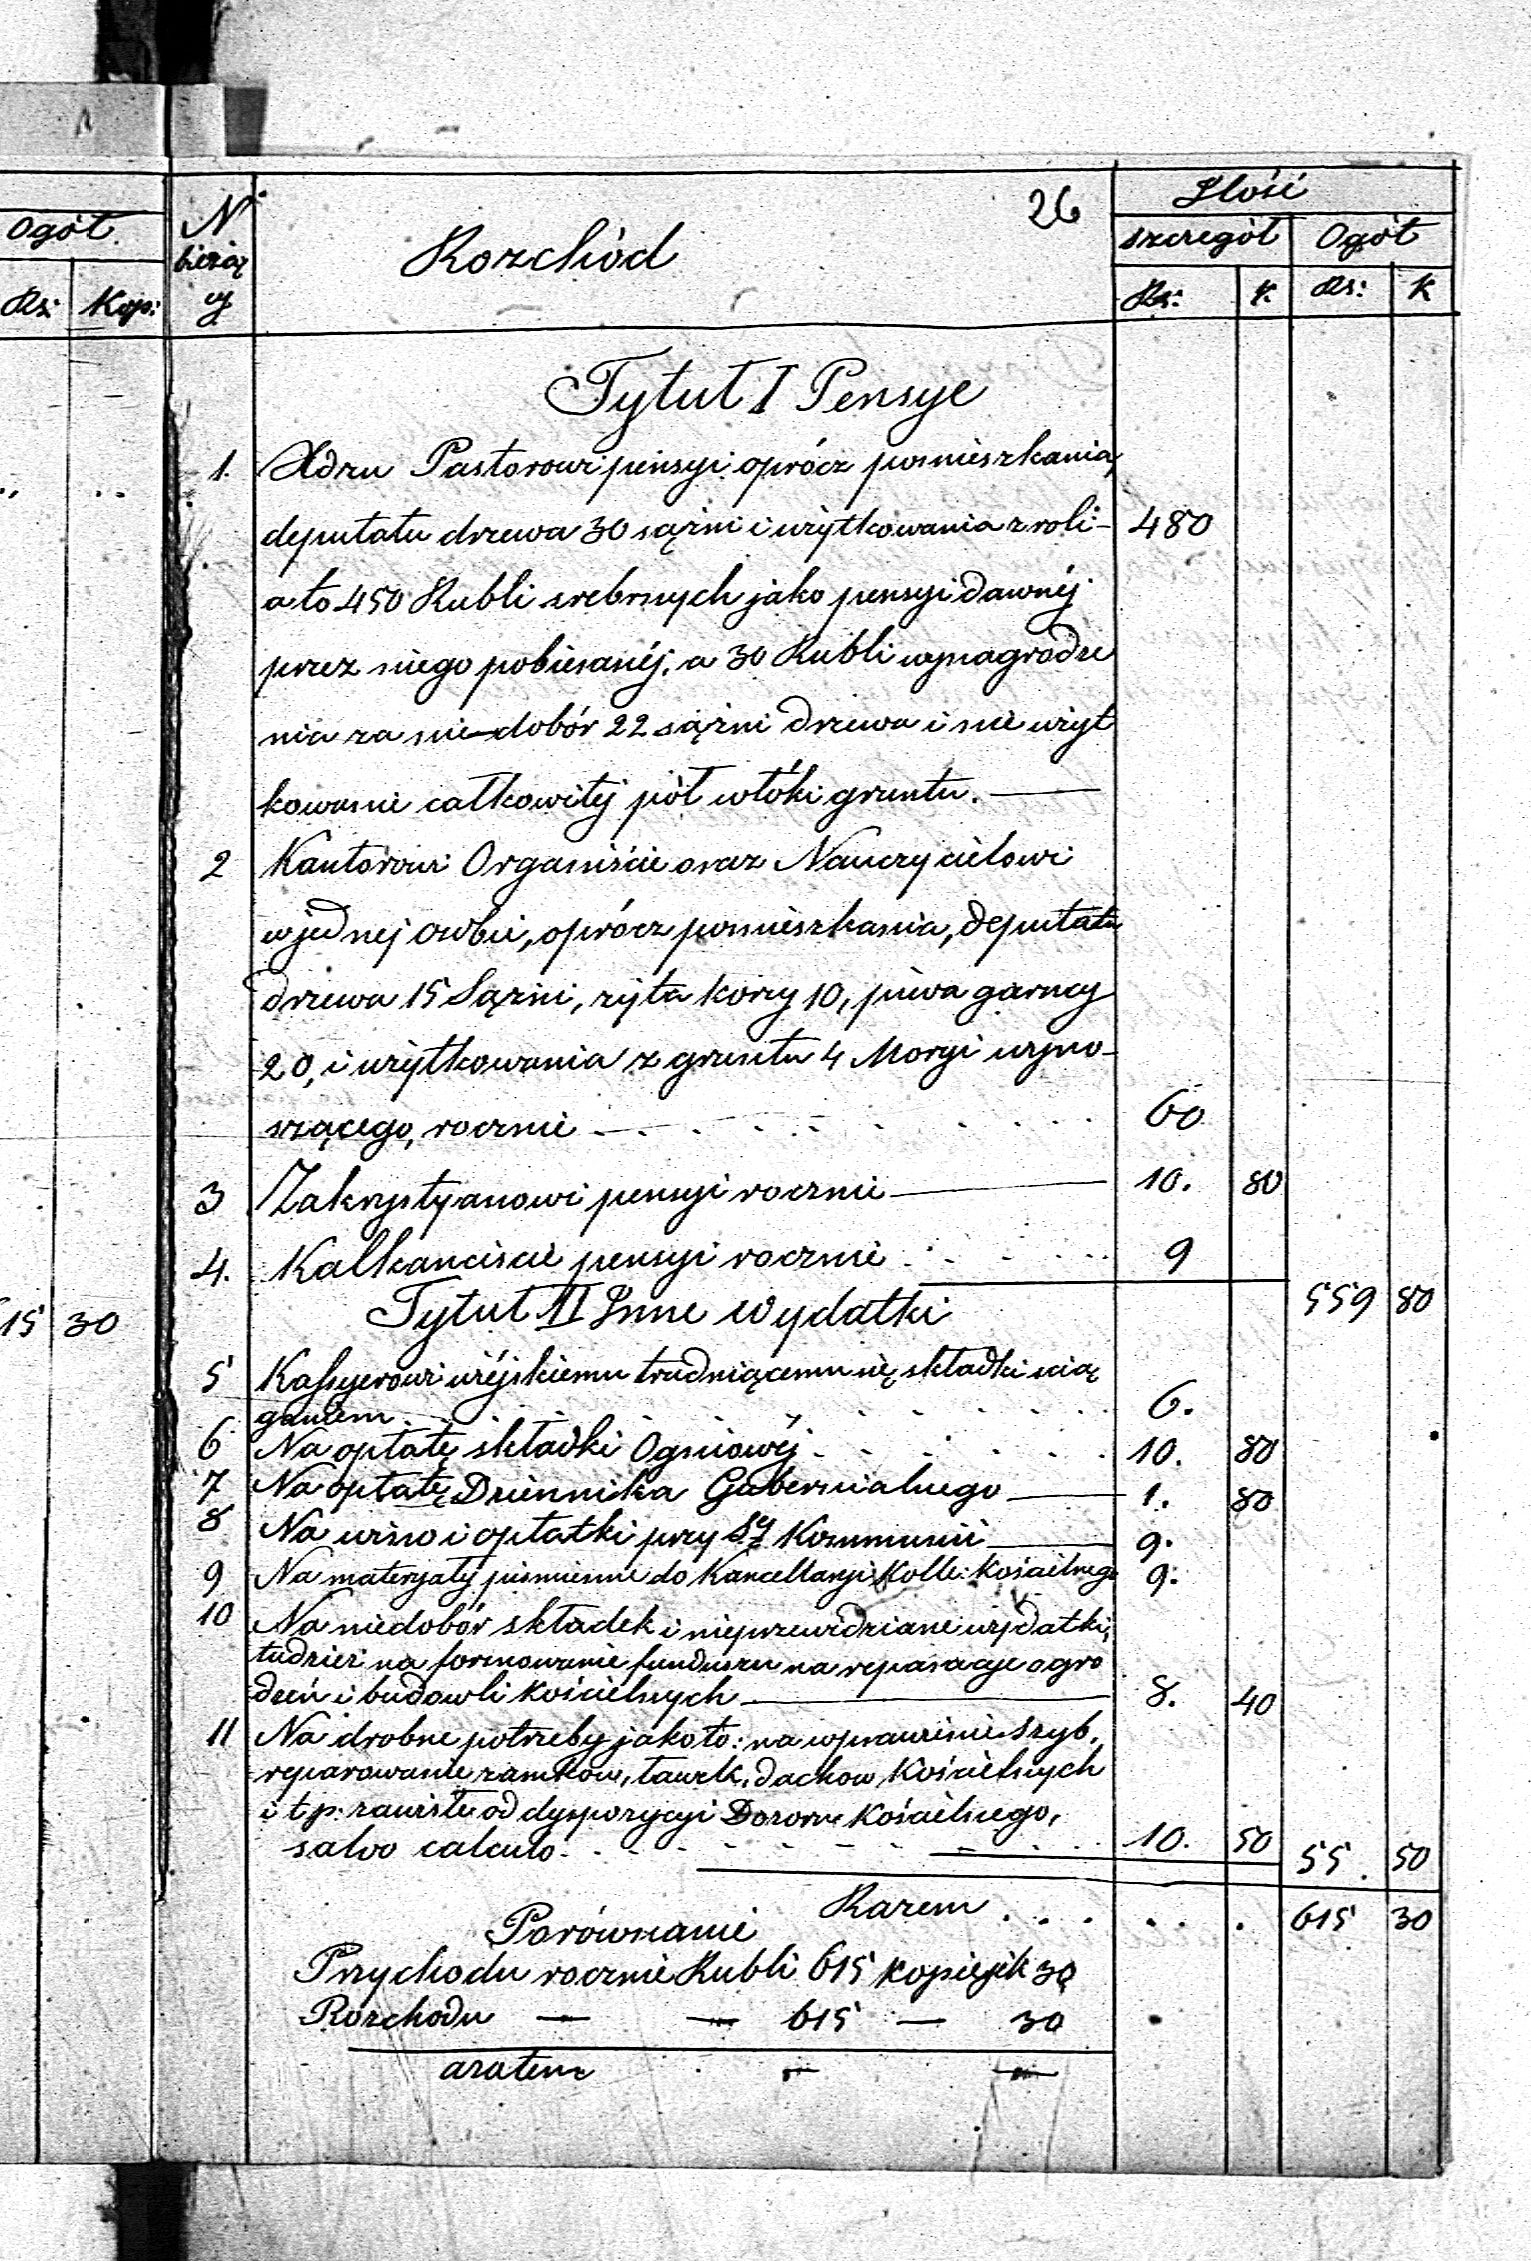 Ogół.
Rs: Kop:
15 30
N bieżą cy
Rozchód
26
Ilość
szczegół Ogół
Rs: k. Rs: k
Tytuł I Pensye
1. Xdzu Pastorowi pensyi oprócz pomieszkania,
deputatu drzewa 30 sążni i użytkowania z roli- 480
a to 450 Rubli srebrnych jako pensyi dawnéj
przez niego pobieranéj, a 30 Rubli wynagrodze
nia za nie-dobór 22 sążni drzewa i nie użyt
kowanie całkowitéj pół włóki gruntu. —
2 Kantorowi Organiście oraz Nauczycielowi
w jednej osobie, oprócz pomieszkania, deputatu
drzewa 15 Sążni, żyta korcy 10, piwa garncy
20, i użytkowania z gruntu 4 Morgi wyno-
szącego, rocznie 60
3 Zakrystyanowi pensyi rocznie — 10. 80
4. Kalkanciscie pensyi rocznie 9
559 80
Tytuł II Inne wydatki
5 Kassyerowi wiéjskiemu trudniącemu się składki ścią
ganiem 6.
6 Na opłatę składki Ogniowéj 10. 80
7 Na opłatę Dziennika Gubernialnego — 1. 80
8 Na wino i opłatki przy Sy Kommunii — 9.
9 Na materyały piśmienne do Kancellaryi Kolle: Kościelnego 9.
10 Na niedobór składek i nieprzewidziane wydatki,
tudzież na formowanie funduszu na reparacye ogro
dzeń i budowli kościelnych — 8. 40
11 Na drobne potrzeby jakoto: na wprawienie szyb,
reparowanie zamków, ławek, dachow Kościelnych
i t p: zawisłe od dyspozycyi Dozoru Kościelnego,
salvo calculo 10. 50 55. 50
Razem . . . . . . 615 30
Porównanie
Przychodu rocznie Rubli 615 kopiejek 30
Rozchodu — — 615 — 30
azatem — —